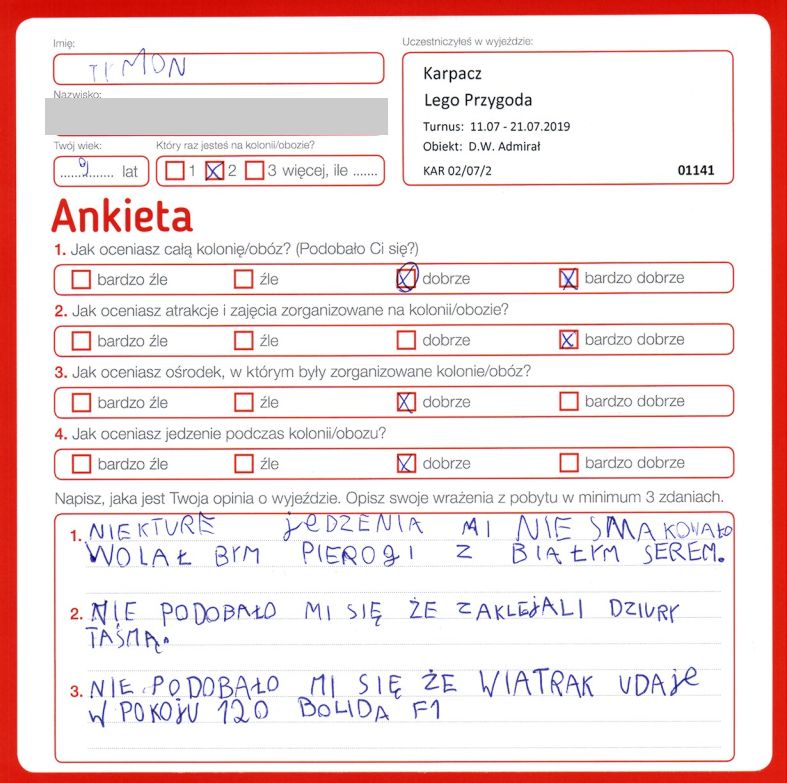 Imię:
TYMON
Nazwisko:
Twój wiek:
9 lat
Który raz jesteś na kolonii/obozie?
1 2 3 więcej, ile .......
Uczestniczyłeś w wyjeździe:
Karpacz
Lego Przygoda
Turnus: 11.07 - 21.07.2019
Obiekt: D.W. Admirał
KAR 02/07/2 01141
Ankieta
1. Jak oceniasz całą kolonię/obóz? (Podobało Ci się?)
bardzo źle źle dobrze bardzo dobrze
2. Jak oceniasz atrakcje i zajęcia zorganizowane na kolonii/obozie?
bardzo źle źle dobrze bardzo dobrze
3. Jak oceniasz ośrodek, w którym były zorganizowane kolonie/obóz?
bardzo źle źle dobrze bardzo dobrze
4. Jak oceniasz jedzenie podczas kolonii/obozu?
bardzo źle źle dobrze bardzo dobrze
Napisz, jaka jest Twoja opinia o wyjeździe. Opisz swoje wrażenia z pobytu w minimum 3 zdaniach.
1. NIEKTURE jEDZENIA MI NIE SMAKOWAŁO
WOLAŁ BYM PIEROGI Z BIAŁYM SEREM.
2. NIE PODOBAŁO MI SIĘ ŻE ZAKLEJALI DZIURY
TAŚMĄ.
3. NIE PODOBAŁO MI SIĘ ŻE WIATRAK UDAJE
W POKOJU 120 BOLIDA F1